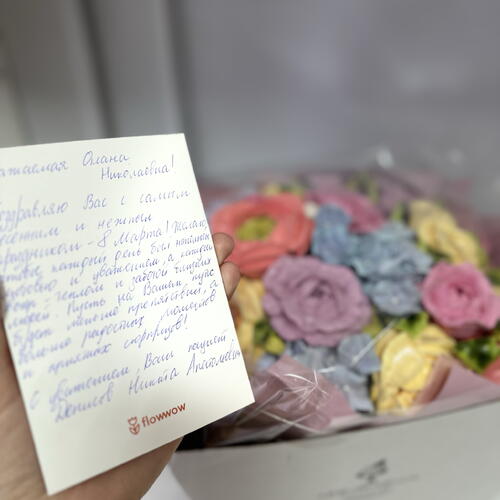 Уважаемая Олана
Николаевна!
Поздравляю Вас с самым
весенним и нежным
праздником - 8 Марта! Желаю,
чтобы каждый день был наполнен
любовью и уважением, а
теплом и заботой близких
людей. Пусть на Вашем пути
будет меньше препятствий, а
больше радостных моментов
и приятных сюрпризов!
С уважением, Ваш пациент
Денисов Никита Анатольевич
flowwow